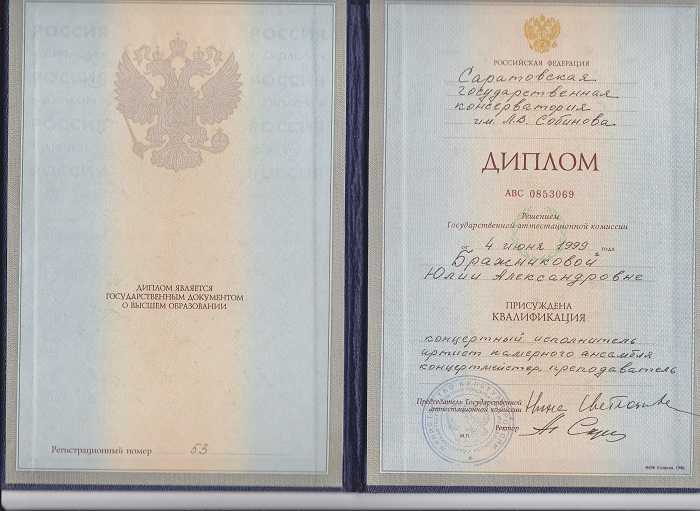 ДИПЛОМ ЯВЛЯЕТСЯ
ГОСУДАРСТВЕННЫМ ДОКУМЕНТОМ
О ВЫСШЕМ ОБРАЗОВАНИИ
Регистрационный номер 53
РОССИЙСКАЯ ФЕДЕРАЦИЯ
Саратовская
государственная
консерватория
им. Л.В. Собинова
ДИПЛОМ
АВС 0853069
Решением
Государственной аттестационной комиссии
от 4 июня 1999 года
Бражниковой
Юлии Александровне
ПРИСУЖДЕНА
КВАЛИФИКАЦИЯ
концертный исполнитель
артист камерного ансамбля
концертмейстер, преподаватель
Председатель Государственной
аттестационной комиссии
Ректор
М.П.